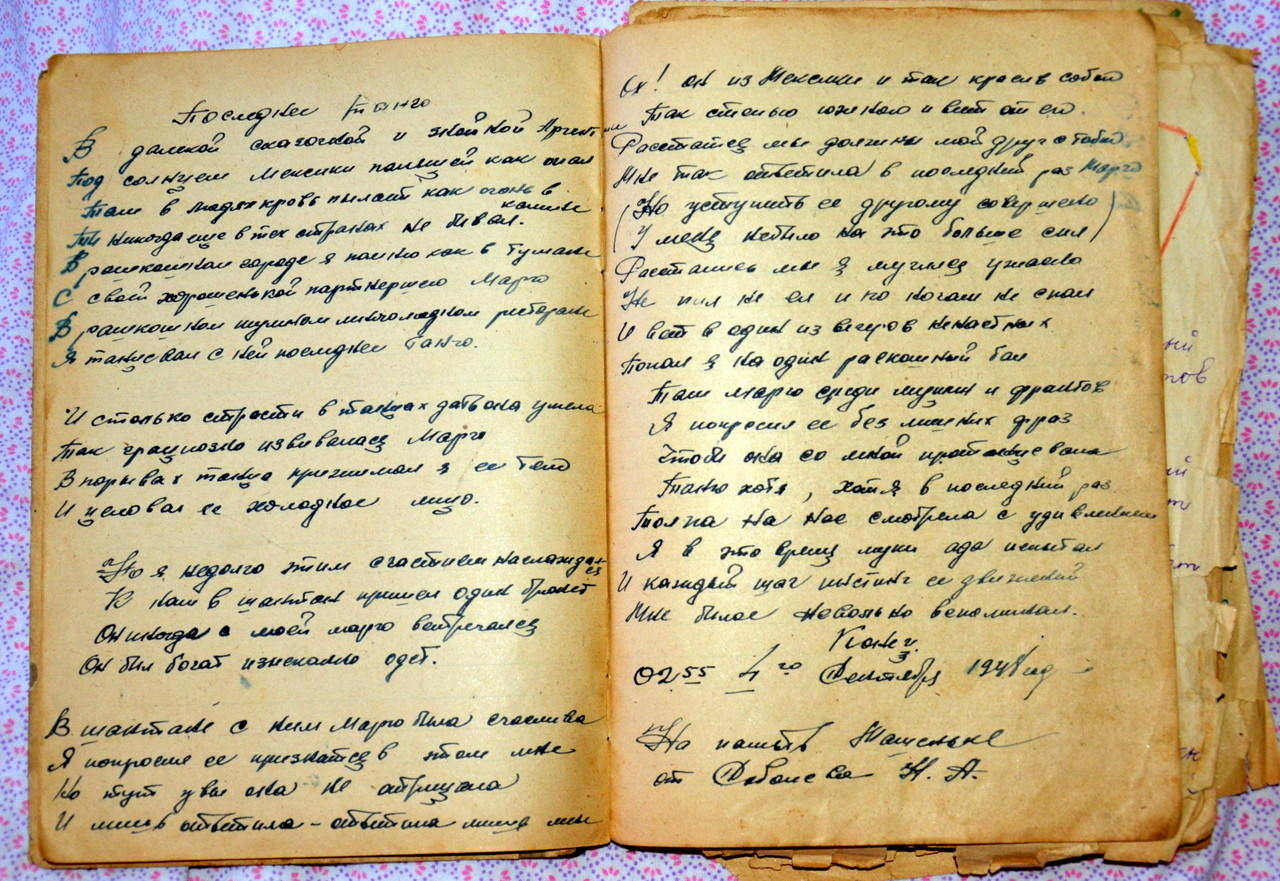 Последнее танго
В далекой сказочной и знойной Аргентине
Под солнцем Мексики палящей как опал
Там в людях кровь пылает как огонь в
камине
Ты никогда еще в тех странах не бывал.
В рашкошном городе я помню как в тумане
С свой хорошенькой партнершею Марго
В рашкошном шумном ресторане
Я танцевал с ней последнее Танго.
И столько страсти в танцах дать она умела
Так грациозно извивалась Марго
В порывах танца прижимал я ее тело
И целовал ее холодное лицо.
Но я недолго этим счастием наслаждался
К нам в шантан пришел один брюнет
Он иногда с моей марго встречался
Он был богат изнескано одет.
В шантане с ним Марго была счаслива
Я попросил ее признаться в этом мне
Но тут увы она не отрицала
И лишь ответила – ответила лишь мне
Ох! он из Мексики и так красив собой
Так степью южною и веит от его.
Расстатся мы должны мой друг с тобой
Мне так ответила в последний раз Марго
(Но уступить ее другому совершено
У меня небыло на это больше сил)
Расстались мы я мучился ужасно
Не пил не ел и по ночам не спал
И вот в один из вечеров ненастных
Попал я на один раскошный бал
Там Марго среди мущин и франтов
Я попросил ее без лишних фраз
Чтоби она со мной протанцевала
Танго хотя, хотя в последний раз.
Толпа на нас смотрела с удивлением
Я в это время муки ада испытал
И каждый шаг ее движений
Мне былое невольно вспоминал.
Конец.
02 55 4 го Сентября 1948 год
На память Машеньке
от Соболева Н. А.